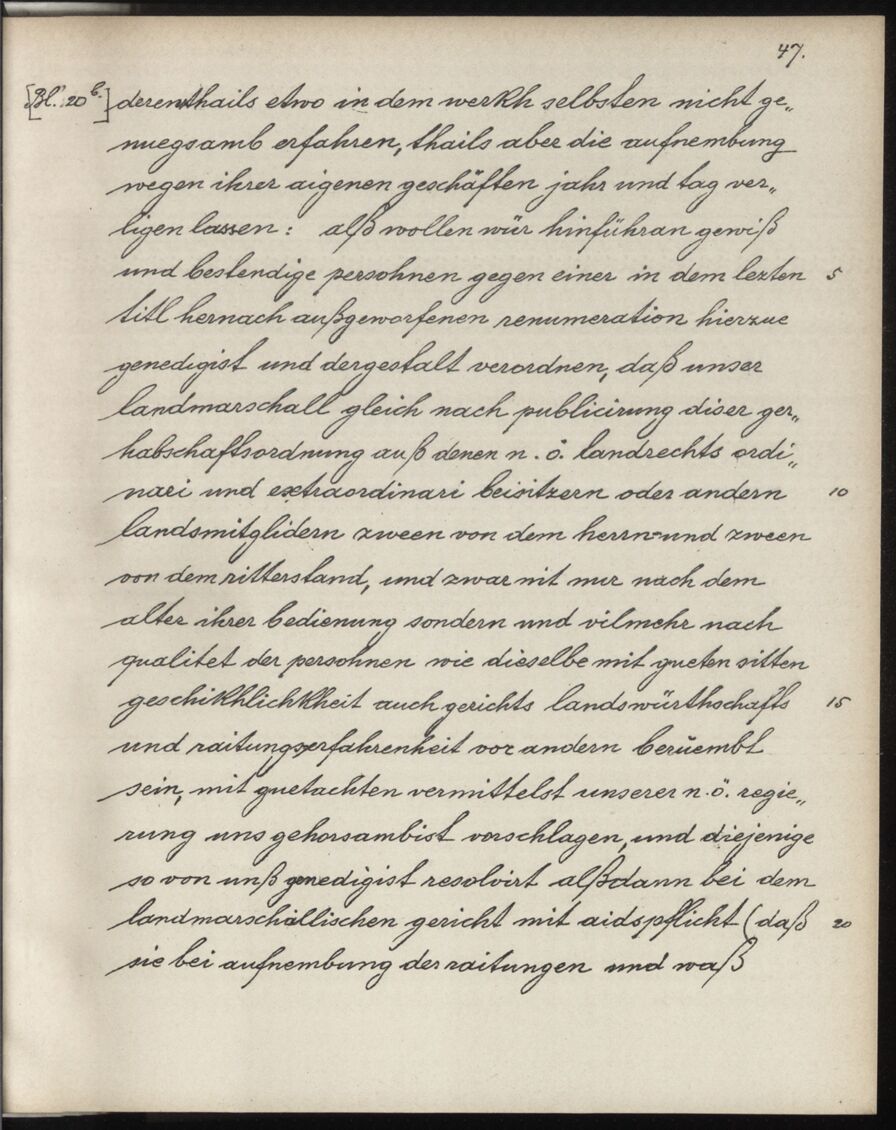 47.
[Bl. 20 b.] derenthails etwo in dem werkh selbsten nicht ge„
nuegsamb erfahren, thails aber die aufnembung
wegen ihrer aigenen geschäften jahr und tag ver„
ligen lassen: alß wollen wür hinführan gewiß
und bestendige persohnen gegen einer in dem lezten 5
titl hernach außgeworfenen renumeration hierzue
genedigist und dergestalt verordnen, daß unser
landmarschall gleich nach publicirung diser ger„
habschaftsordnung auß denen n. ö. landrechts ordi„
nari und extraordinari beisitzern oder andern 10
landsmitglidern zween von dem herrn= und zween
von dem ritterstand, und zwar nit nur nach dem
alter ihrer bedienung sondern und vilmehr nach
qualitet der persohnen wie dieselbe mit gueten sitten
geschikhlichkheit auch gerichts landswürthschafts 15
und raitungserfahrenheit vor andern berüembt
sein, mit guetachten vermittelst unserer n. ö. regie„
rung uns gehorsambist vorschlagen, und diejenige
so von unß genedigist resolvirt alßdann bei dem
landmarschallischen gericht mit aidspflicht (daß 20
sie bei aufnembung der raitungen und waß